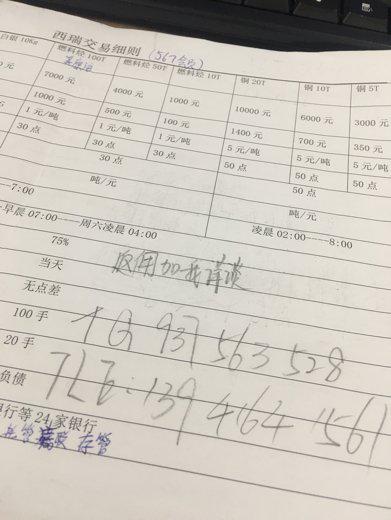 西瑞交易细则 (567会员)
白银 10Kg 燃料烃 100T 燃料烃 50T 燃料烃 10T 铜 20T 铜 10T 铜 5T
元 7000 元 4000 元 1000 元 10000 元 6000 元 3000 元
1000 元 500 元 100 元 1400 元 700 元 350 元
1 元/吨 1 元/吨 1 元/吨 5 元/吨 5 元/吨 5 元/吨
30 点 30 点 30 点 50 点 50 点 50 点
30 点 30 点 50 点 50 点 50 点
吨/元 吨/元
7:00
早晨 07:00----周六凌晨 04:00 凌晨 02:00-----8:00
75%
当天 加我详谈
无点差
100 手 937 563 528
20 手 139 464 1561
负债
行等 24 家银行
存管